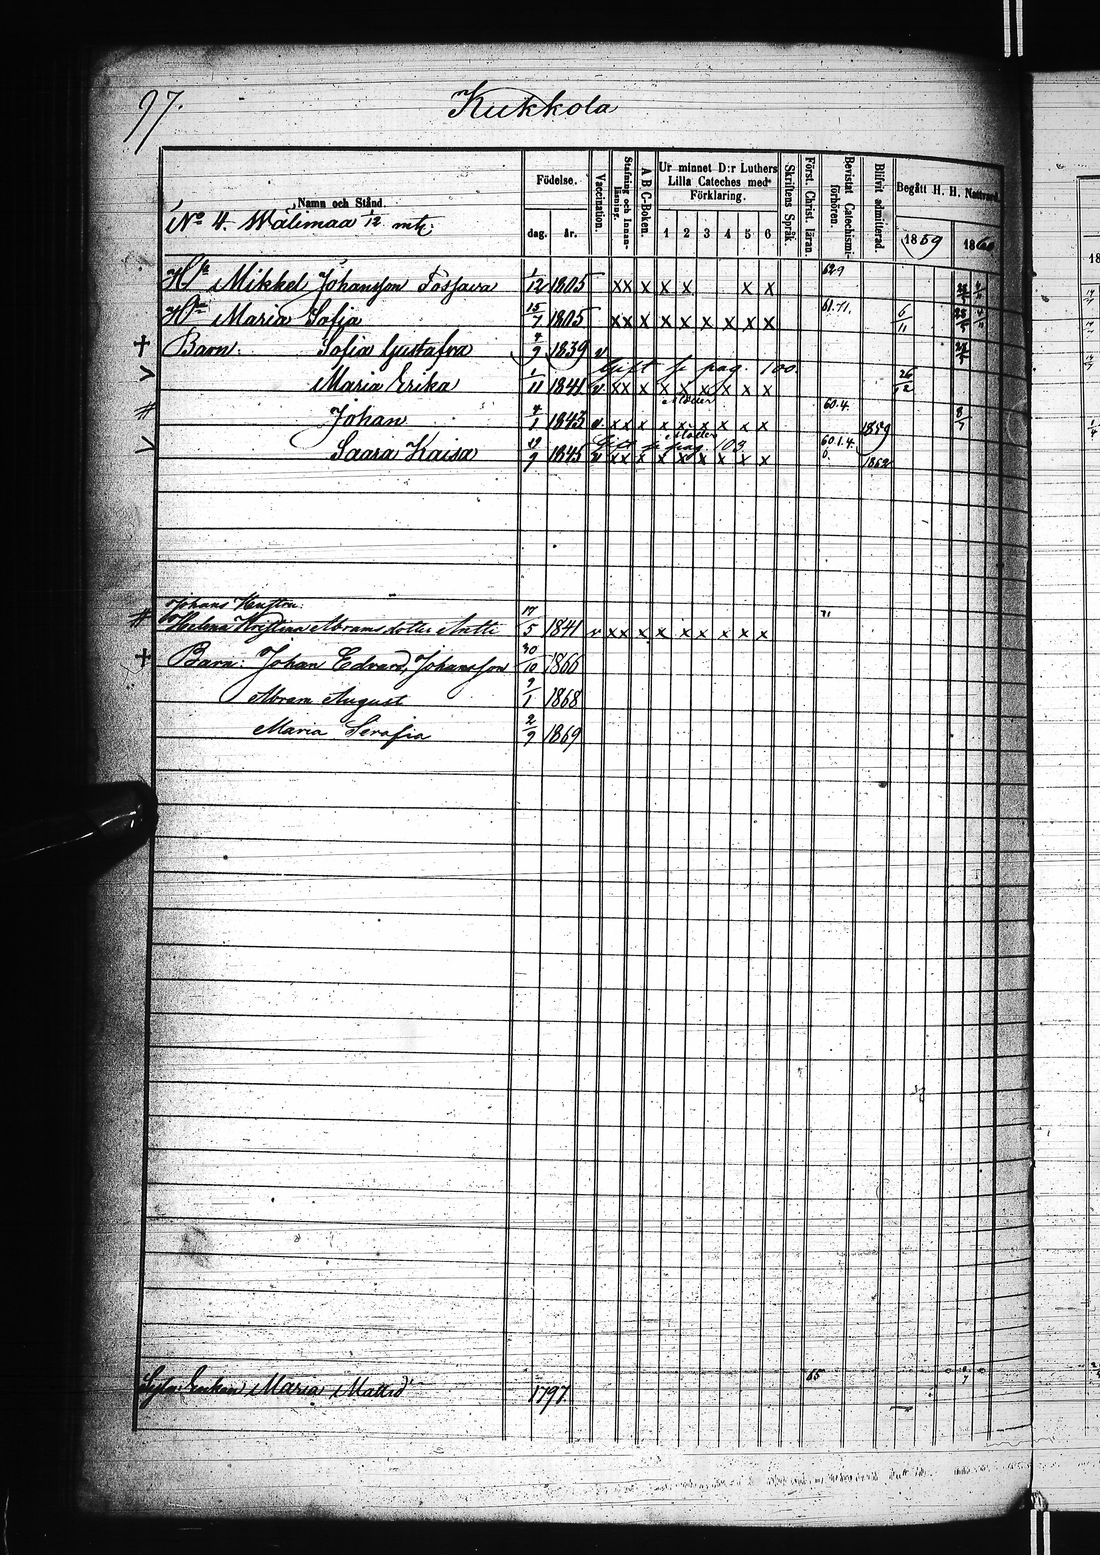 97.
Kukkola
Namn och Stånd.
Födelse.
dag. år.
Vaccination.
Stafning och Innanläsning.
A B C-Boken.
Ur minnet D:r Luthers Lilla Cateches med Förklaring.
1 2 3 4 5 6
Skriftens Språk
Först. Christ. läran.
Bevistat Catechismiförhören.
Blifvit admitterad.
Begått H. H. Nattvard.
1859 1860
No 4. Wälimaa 1/12 mtl.
Mikkel Johansson 1/12 1805 xx x x x x x
Maria Sofia 15/7 1805 xx x x x x x x x 6/11
Barn: Sofia Gustafva 4/9 1839 v
Gift se pag. 100.
Maria Erika 1/11 1841 v xx x x x x x x x 26/12
Johan 4/1 1843 v xx x x x x x x x 60.4. 1859 8/7
Gift se pag. 103
Saara Kaisa 1845 v xx x x x x x x x 60.1.4. 6. 1862
Johans Hustru:
Helena Kristina Abramsdotter Antti 17/5 1841 v xx x x x x x x x 71
Barn: Johan Edvard, Johansson 30/10 1866
Abram August 9/1 1868
Maria Serafia 2/9 1869
Enkan Maria Mattsd 1797. 65